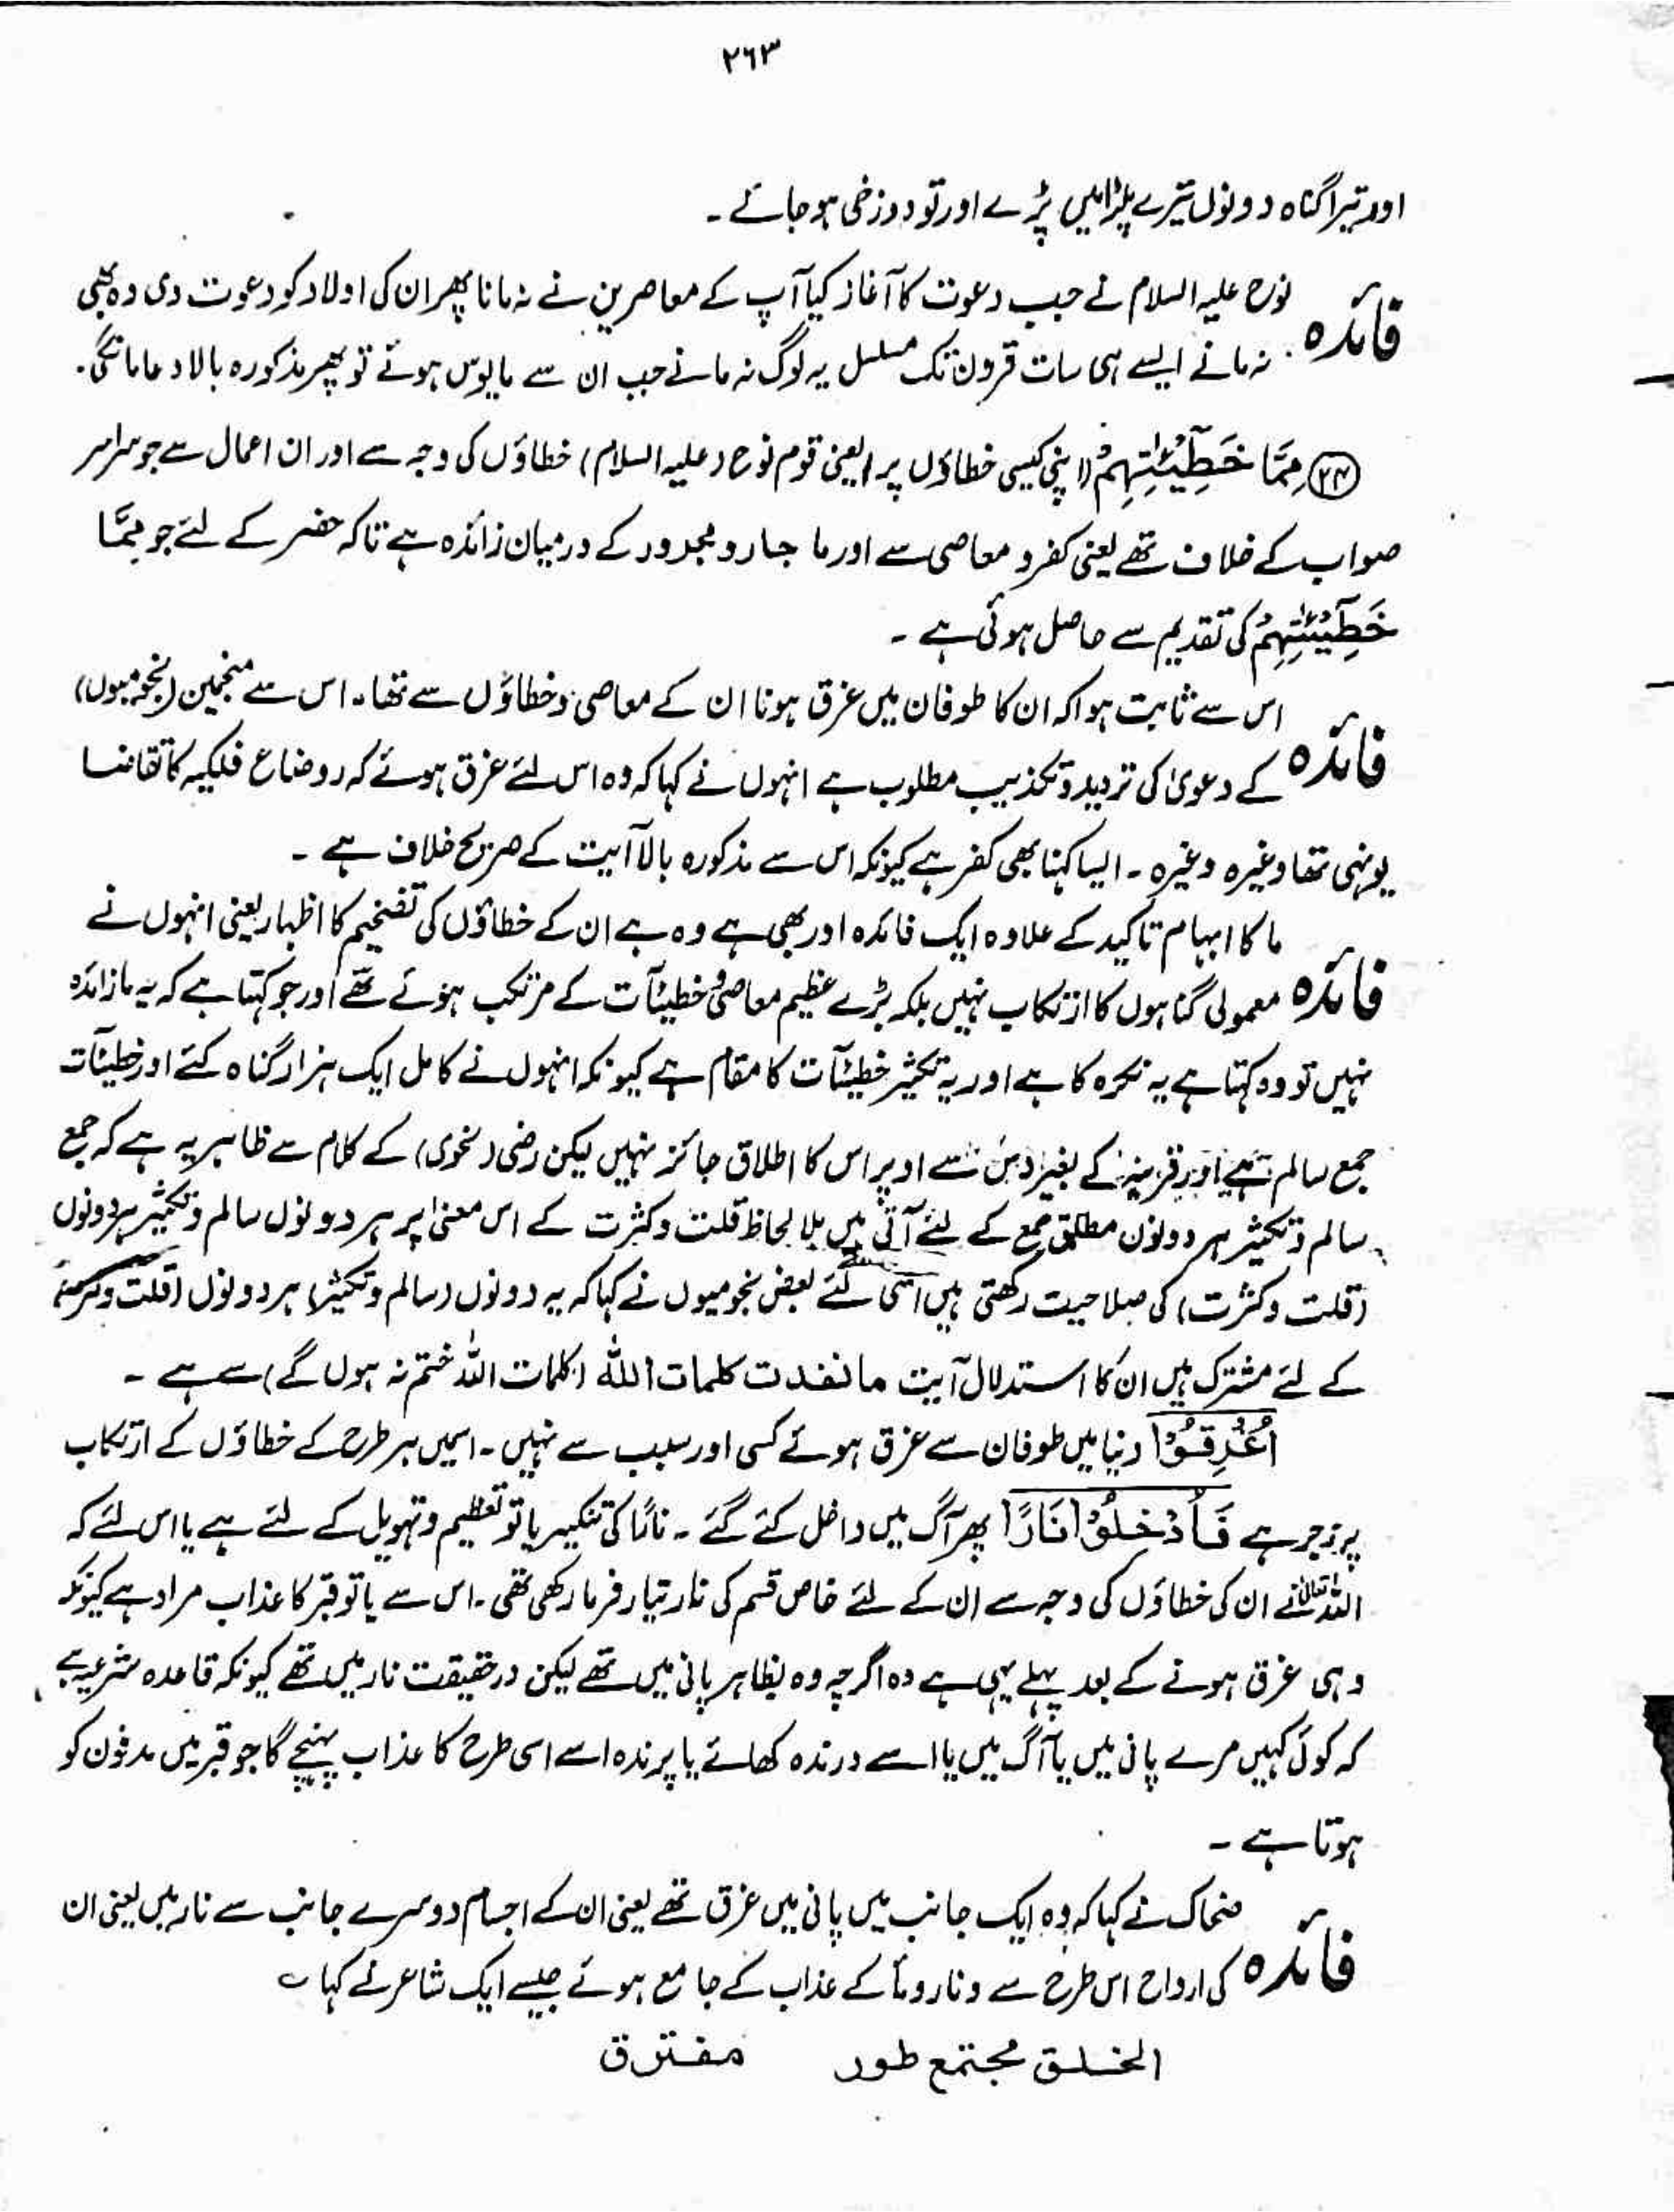 ٢٦٣
اور تیرا گناہ دونوں تیرے پلڑا میں پڑے اور تو دوزخی ہو جائے ۔
فائدہ . نوح علیہ السلام نے جب دعوت کا آغاز کیا آپ کے معاصرین نے نہ مانا پھر ان کی اولاد کو دعوت دی وہ بھی
نہ مانے ایسے ہی سات قرون تک مسلسل یہ لوگ نہ مانے جب ان سے مایوس ہوئے تو پھر مذکورہ بالا دعا مانگی .
مِمَّا خَطِیْٓئٰتِهِمْ (اپنی کیسی خطاؤں پر) یعنی قوم نوح (علیہ السلام) خطاؤں کی وجہ سے اور ان اعمال سے جو سراسر
صواب کے خلاف تھے یعنی کفر و معاصی سے اور ما جار و مجرور کے درمیان زائدہ ہے تاکہ حضر کے لئے جو مِمَّا
خَطِیْٓئٰتِهِمْ کی تقدیم سے حاصل ہوئی ہے ۔
فائدہ اس سے ثابت ہوا کہ ان کا طوفان میں غرق ہونا ان کے معاصی و خطاؤں سے تھا۔ اس سے منجمین (نجومیوں)
کے دعویٰ کی تردید و تکذیب مطلوب ہے انہوں نے کہا کہ وہ اس لئے غرق ہوئے کہ روضاع فلکیہ کا تقاضا
یونہی تھا وغیرہ وغیرہ ۔ ایسا کہنا بھی کفر ہے کیونکہ اس سے مذکورہ بالا آیت کے صریح خلاف ہے ۔
فائدہ ما کا ابہام تاکید کے علاوہ ایک فائدہ اور بھی ہے وہ ہے ان کے خطاؤں کی تفخیم کا اظہار یعنی انہوں نے
معمولی گناہوں کا ارتکاب نہیں بلکہ بڑے عظیم معاصی و خطیئآت کے مرتکب ہوئے تھے اور جو کہتا ہے کہ یہ ما زائدہ
نہیں تو وہ کہتا ہے یہ نکرہ کا ہے اور یہ تکثیر خطیئآت کا مقام ہے کیونکہ انہوں نے کامل ایک ہزار گناہ کئے اور خطیئآت
جمع سالم ہے اور قرینہ کے بغیر دس سے اوپر اس کا اطلاق جائز نہیں لیکن رضی (نحوی) کے کلام سے ظاہر یہ ہے کہ جمع
سالم و تکثیر ہر دونوں مطلق جمع کے لئے آتی ہیں بلا لحاظ قلت و کثرت کے اس معنیٰ پر ہر دونوں سالم و تکثیر ہر دونوں
(قلت و کثرت) کی صلاحیت رکھتی ہیں اسی لئے بعض نجومیوں نے کہا کہ یہ دونوں (سالم و تکثیر) ہر دونوں (قلت و کثرت)
کے لئے مشترک ہیں ان کا استدلال آیت ما نفدت کلمات اللہ (کلمات اللہ ختم نہ ہوں گے) سے ہے ۔
اُغْرِقُوْا دنیا میں طوفان سے غرق ہوئے کسی اور سبب سے نہیں ۔ اسمیں ہر طرح کے خطاؤں کے ارتکاب
پر زجر ہے فَاُدْخِلُوْا نَارًا پھر آگ میں داخل کئے گئے ۔ نارًا کی تنکیر یا تو تعظیم و تہویل کے لئے ہے یا اس لئے کہ
اللہ تعالیٰ نے ان کی خطاؤں کی وجہ سے ان کے لئے خاص قسم کی نار تیار فرما رکھی تھی ۔ اس سے یا تو قبر کا عذاب مراد ہے کیونکہ
وہی غرق ہونے کے بعد پہلے یہی ہے وہ اگرچہ وہ بظاہر پانی میں تھے لیکن درحقیقت نار میں تھے کیونکہ قاعدہ شرعیہ ہے
کہ کوئی کہیں مرے پانی میں یا آگ میں یا اسے درندہ کھائے یا پرندہ اسے اسی طرح کا عذاب پہنچے گا جو قبر میں مدفون کو
ہوتا ہے ۔
فائدہ ضحاک نے کہا کہ وہ ایک جانب میں پانی میں غرق تھے یعنی ان کے اجسام دوسرے جانب سے نار میں یعنی ان
کی ارواح اس طرح سے و نار و مأ کے عذاب کے جامع ہوئے جیسے ایک شاعر نے کہا ؎
الخلق مجتمع طور مفترق